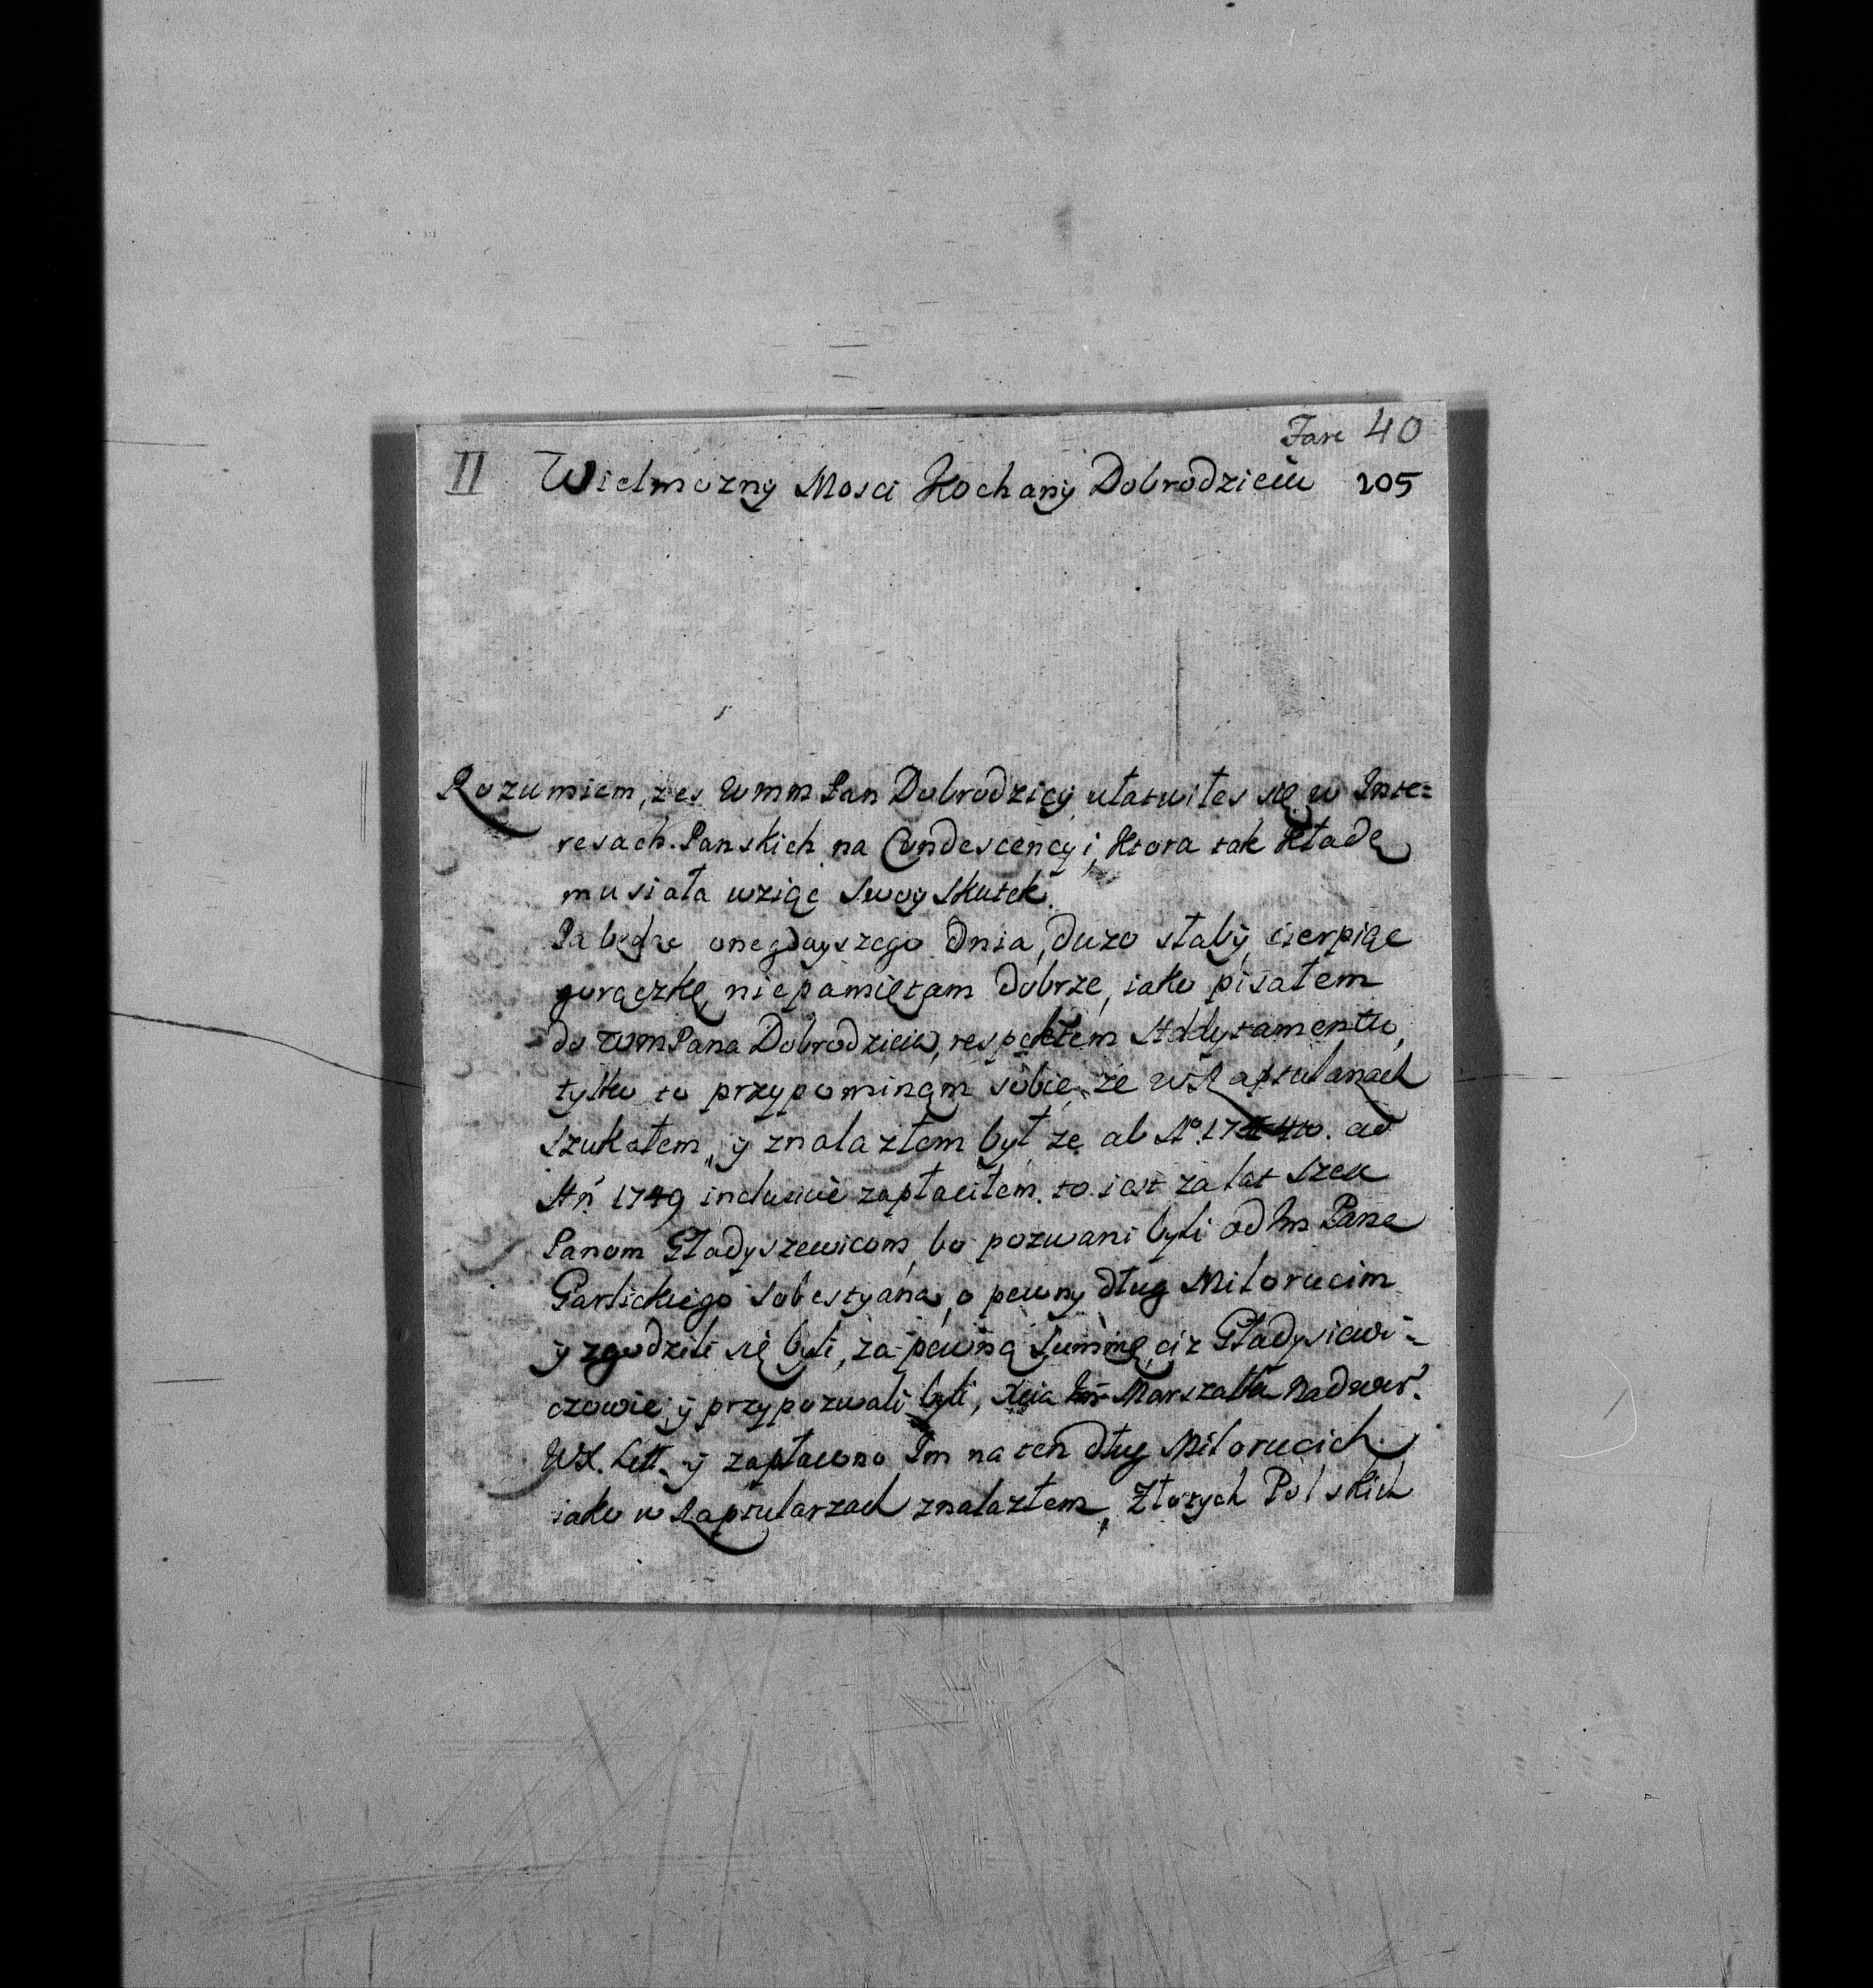 Fasc 40
II Wielmozny Mosci Kochany Dobrodzieiu 205
Rozumiem, zes WMM Pan Dobrodziey ułatwiłes się w Inte=
resach Panskich na Condescencyi, Ktora tak Kładę
musiała wziąc Swoy Skutek.
Ia będąc onegdayszego Dnia, duzo słaby, cierpiąc
gorączkę, niepamiętam Dobrze, iako pisałem
do WM Pana Dobrodzieia, respektem Addytamentu,
tylko to przypominam sobie, ze w Raptularzach
Szukałem, y znalazłem był ze ab Aº 1740. ad
An. 1749 inclusive zapłaciłem. to iest za lat Szesc
Panom Gładyszewiczom, bo pozwani byli od Im Pana
Garlickiego Sobestyana, o pewny dług Miłorucim
y zgodzili się byli, za pewną Summę, ciz Gładysiewi=
czowie, y przypozwali byli, Xcia Im Marszałka Nadwor.
WX. Litt. y zapłacono Im na ten dług Miłorucich
iako w Raptularzach znalazłem, Złotych Polskich